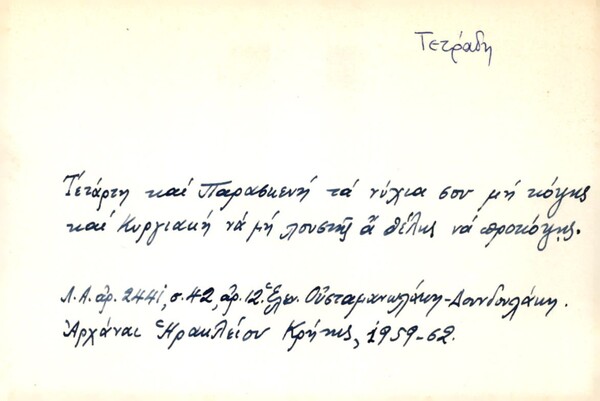 Τετράδη
Τετάρτη καί Παρασκευή τά νύχια σου μή κόψης
καί Κυργιακή νά μή λουστῆς ἄ θέλης νά προκόψης.
Λ.Α. ἀρ. 2441, σ. 42, ἀρ. 12. Ἑλευ. Οὐσταμανωλάκη-Δουνδουλάκη.
Ἀρχάναι Ἡρακλείου Κρήτης, 1959-62.